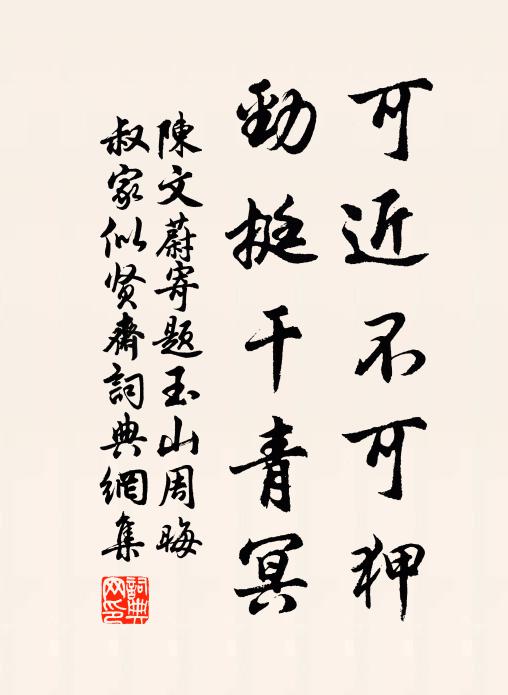 可近不可狎
勁挺干青冥
陳文蔚寄題玉山周晦
叔家似贤齋詞典網集